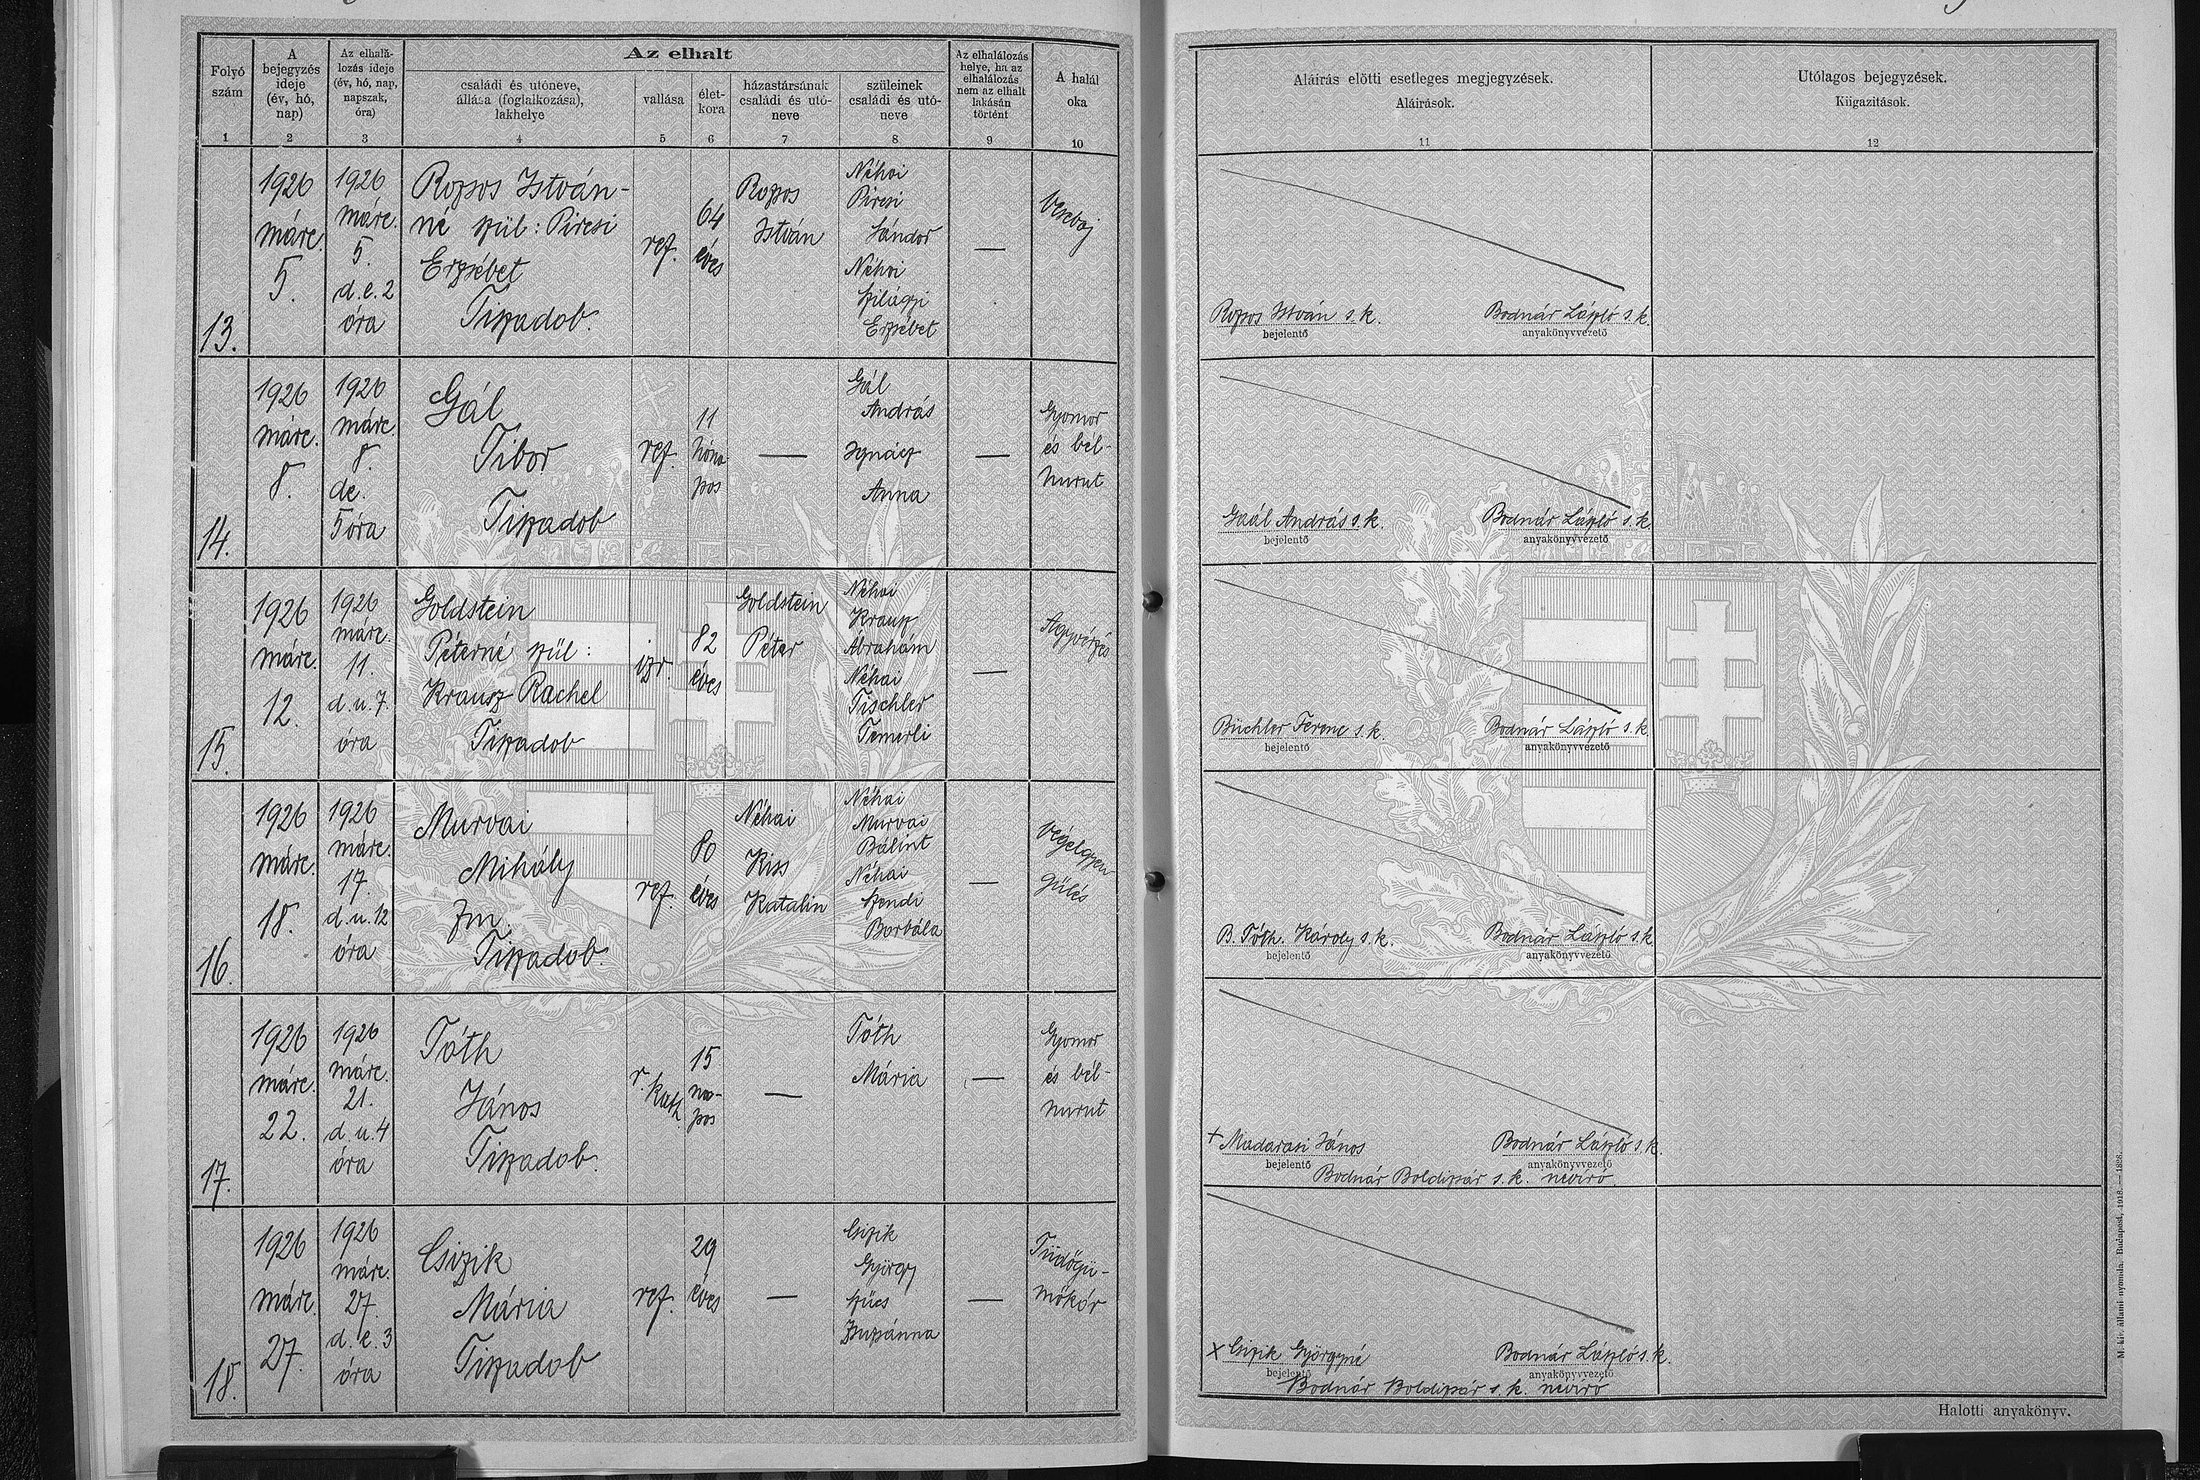 Folyó
szám
1
A
bejegyzés
ideje
(év, hó,
nap)
2
Az elhalá-
lozás ideje
(év, hó, nap,
napszak,
óra)
3
Az elhalt
családi és utóneve,
állása (foglalkozása),
lakhelye
4
vallása
5
élet-
kora
6
házastársának
családi és utó-
neve
7
szüleinek
családi és utó-
neve
8
Az elhalálozás
helye, ha az
elhalálozás
nem az elhalt
lakásán
történt
9
A halál
oka
10
Aláirás előtti esetleges megjegyzések.
Aláirások.
11
Utólagos bejegyzések.
Kiigazitások.
12
13.
1926
márc.
5.
1926
márc.
5.
d.e. 2
óra
Rozsos István-
né szül: Pircsi
Erzsébet
Tiszadob.
ref.
64
éves
Rozsos
István
Néhai
Pircsi
Sándor
Néhai
Szilágyi
Erzsébet
—
Vesebaj
Rozsos István s.k.
bejelentő
Bodnár László s.k.
anyakönyvvezető
14.
1926
márc.
8.
1926
márc.
8.
de.
5 óra
Gál
Tibor
Tiszadob
ref.
11
hóna
pos
—
Gál
András
Ignácz
Anna
—
Gyomor
és bél-
hurut
Gaál András s.k.
bejelentő
Bodnár László s.k.
anyakönyvvezető
15.
1926
márc.
12.
1926
márc.
11.
d.u. 7.
óra
Goldstein
Péterné szül:
Krausz Rachel
Tiszadob
izr.
82
éves
Goldstein
Péter
Néhai
Krausz
Ábrahám
Néhai
Tischler
Temerli
—
Agyvérzés
Büchler Ferenc s.k.
bejelentő
Bodnár László s.k.
anyakönyvvezető
16.
1926
márc.
18.
1926
márc.
17.
d.u. 12
óra
Murvai
Mihály
fm.
Tiszadob.
ref.
80
éves
Néhai
Kiss
Katalin
Néhai
Murvai
Bálint
Néhai
Szendi
Borbála
—
Végelgyen
gülés
B. Tóth Károly s.k.
bejelentő
Bodnár László s.k.
anyakönyvvezető
17.
1926
márc.
22.
1926
márc.
21.
d.u. 4
óra
Tóth
János
Tiszadob.
r. kath
15
na-
pos
—
Tóth
Mária
—
Gyomor
és bél-
hurut
+ Madarasi János
bejelentő
Bodnár László s.k.
anyakönyvvezető
Bodnár Boldizsár s.k. névíró.
18.
1926
márc.
27.
1926
márc.
27.
d.e. 3
óra
Csizik
Mária
Tiszadob
ref.
29
éves
—
Csizik
György
Szücs
Zsuzsánna
—
Tüdőgü-
mőkór
x Csizik Györgyné
bejelentő
Bodnár László s.k.
anyakönyvvezető
Bodnár Boldizsár s.k. névíró
Halotti anyakönyv.
M. kir. állami nyomda. Budapest, 1918. — 1828.